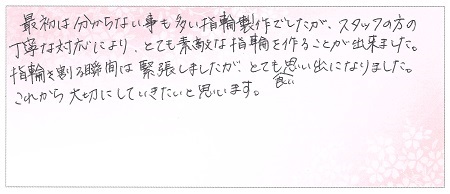 最初は分からない事も多い指輪製作でしたが、スタッフの方の
丁寧な対応により、とても素敵な指輪を作ることが出来ました。
指輪を割る瞬間は緊張しましたが、とても思い出になりました。
これから大切にしていきたいと思います。